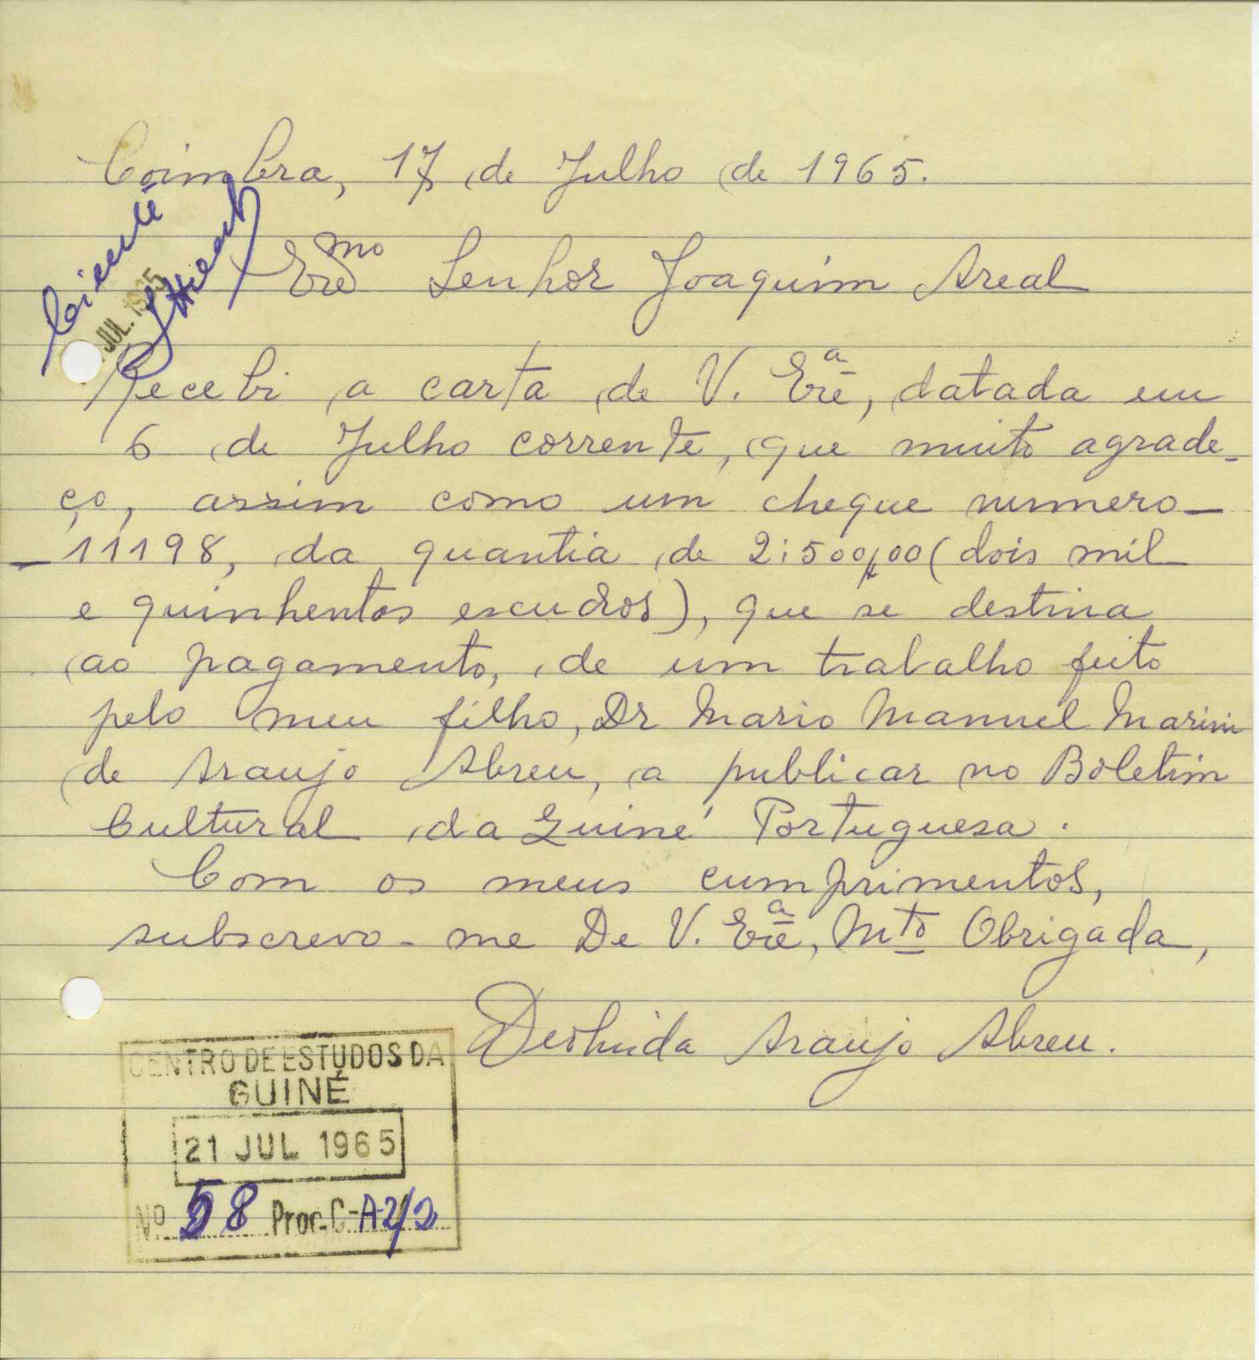 Coimbra, 17 de Julho de 1965.
Ciente
JUL. 1965
Exmo Senhor Joaquim Areal
Recebi a carta de V. Exª, datada em
6 de Julho corrente, que muito agrade-
ço, assim como um cheque numero-
-11198, da quantia de 2:500$00 (dois mil
e quinhentos escudos), que se destina
ao pagamento, de um trabalho feito
pelo meu filho, Dr Mario Manuel
de Araujo Abreu, a publicar no Boletim
Cultural da Guiné Portuguesa.
Com os meus cumprimentos,
subscrevo-me De V. Exª, Mto Obrigada,
Araujo Abreu.
CENTRO DE ESTUDOS DA
GUINÉ
21 JUL 1965
Nº 58 Proc. C-A-2/2